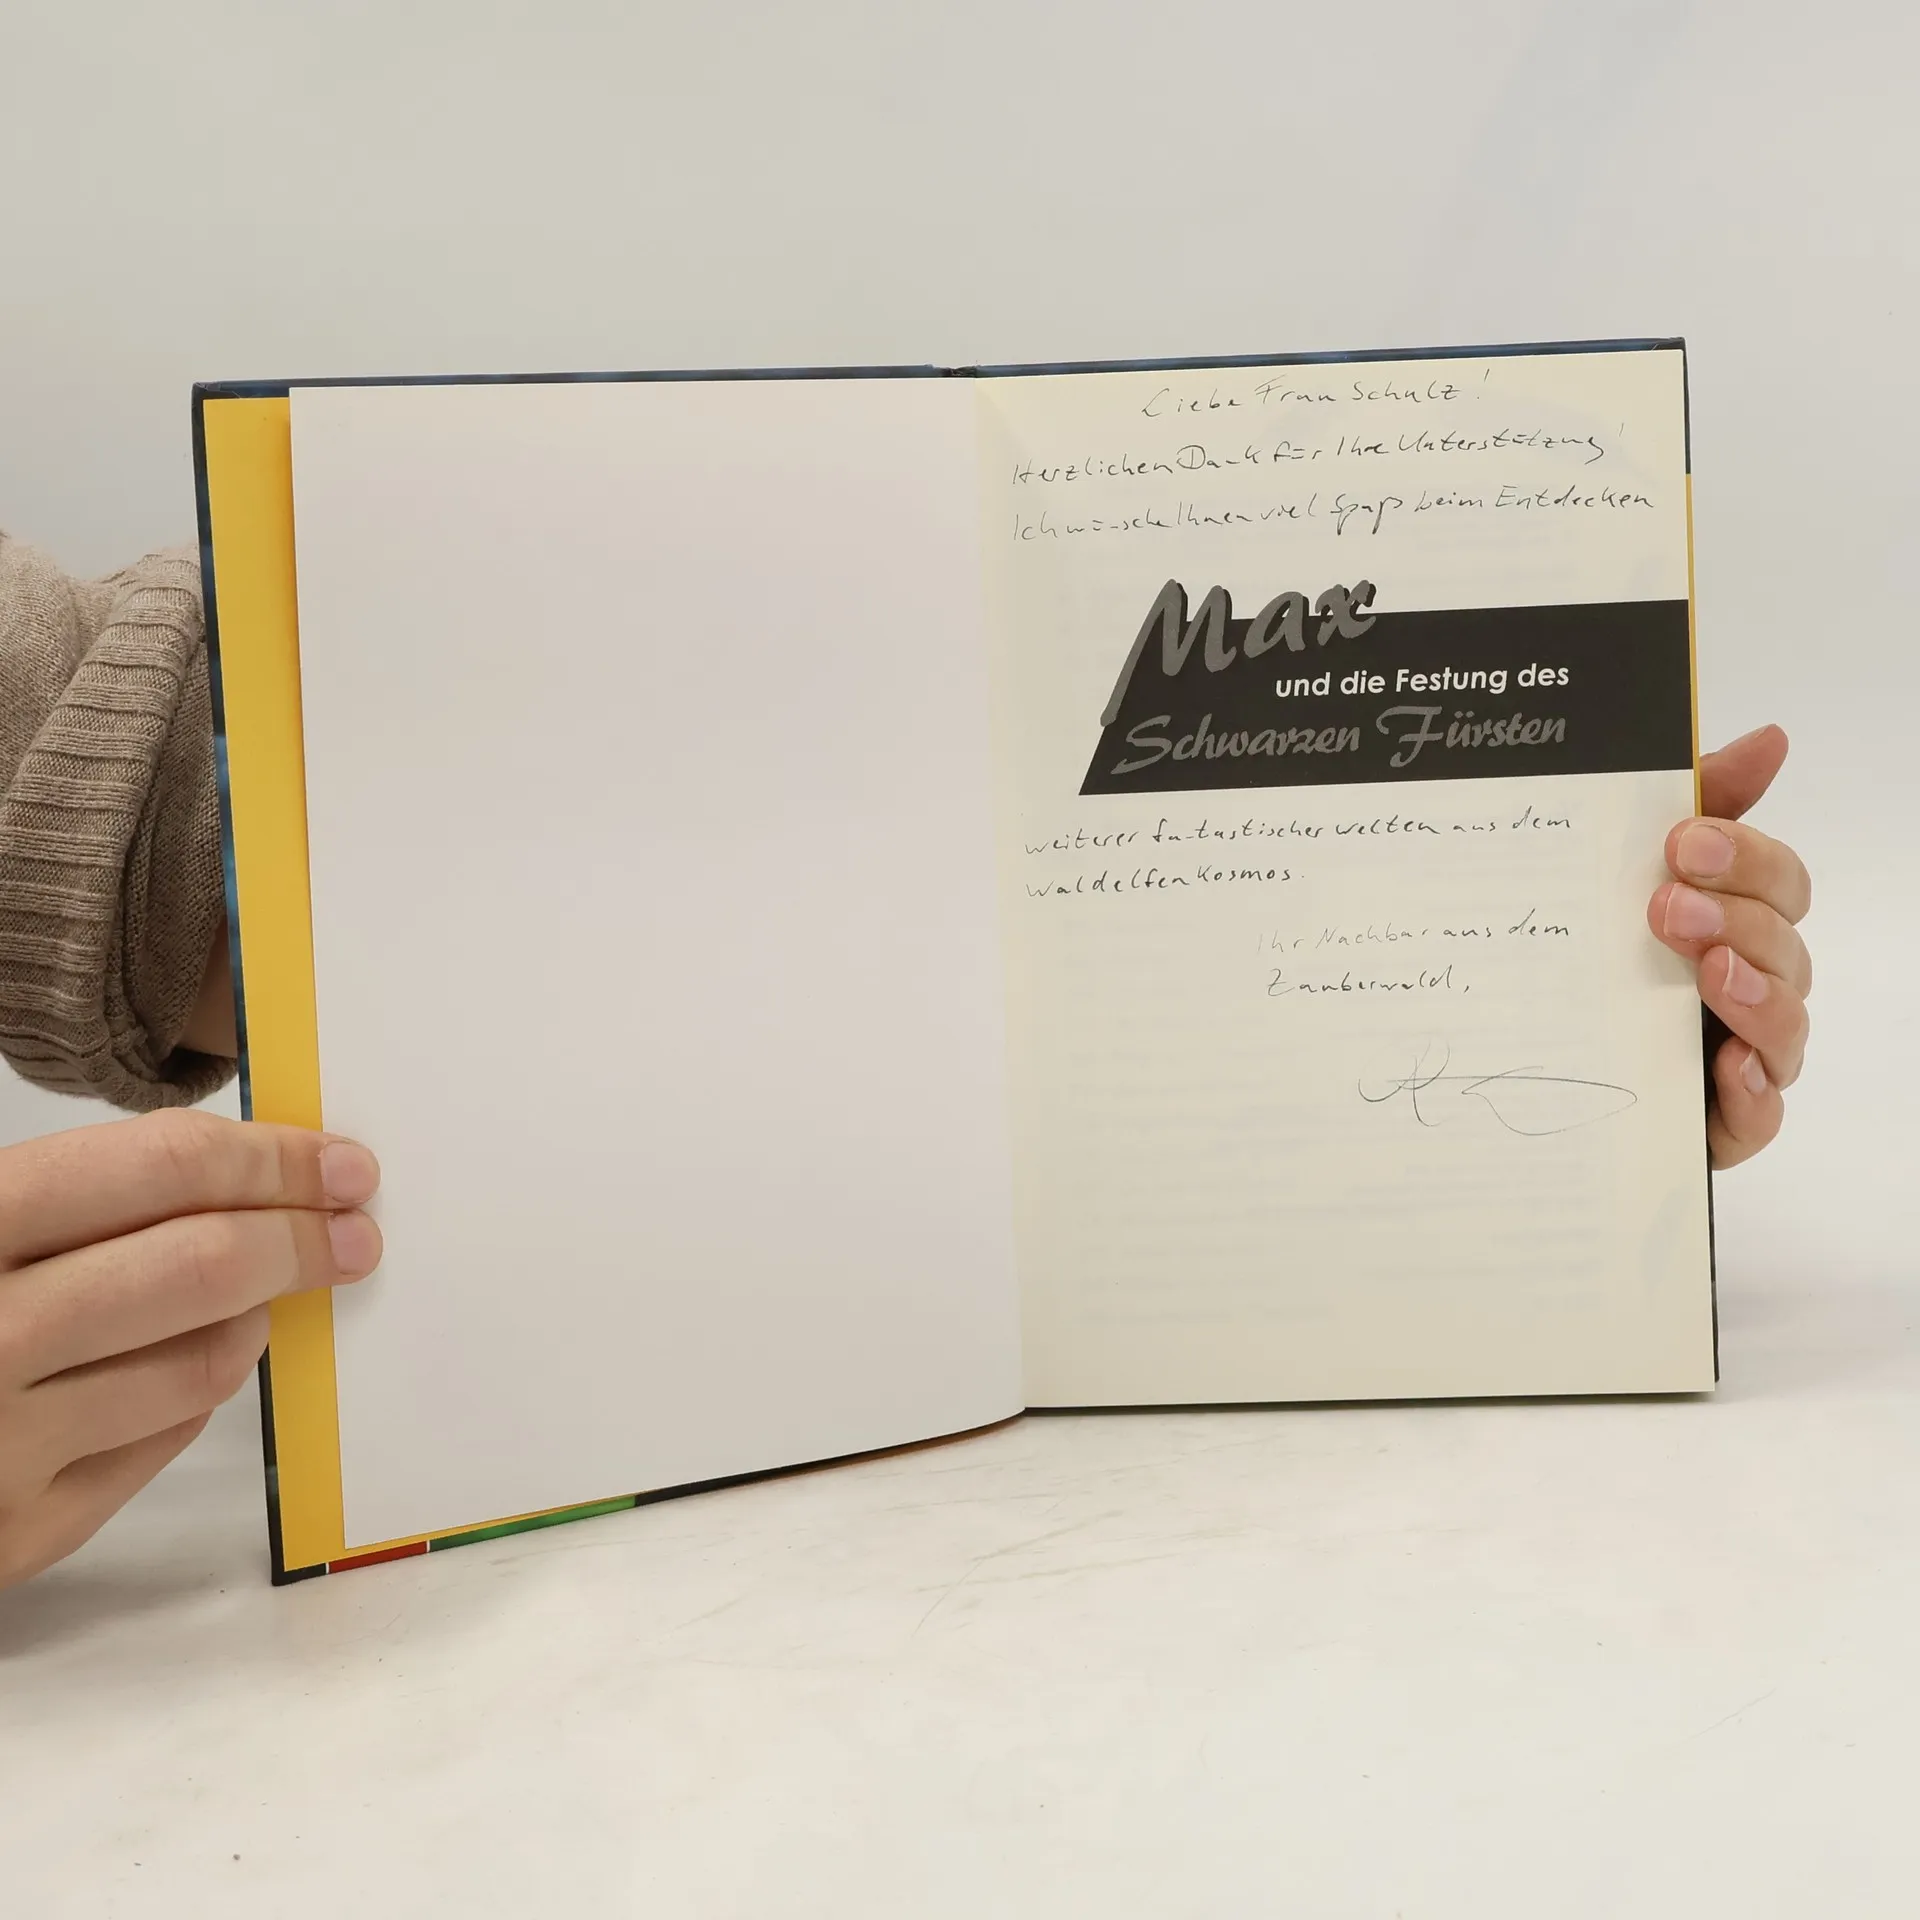 Liebe Frau Schulz!
Herzlichen Dank für Ihre Unterstützung!
Ich wünsche Ihnen viel Spaß beim Entdecken
Max
und die Festung des
Schwarzen Fürsten
weiterer fantastischer Welten aus dem
Waldelfenkosmos.
Ihr Nachbar aus dem
Zauberwald,